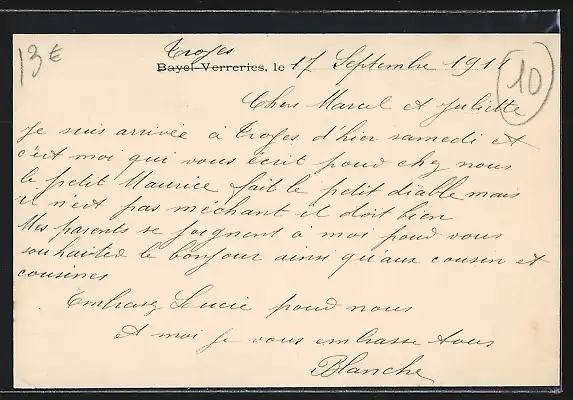 13€
Troyes
Bayel-Verreries, le 17 Septembre 1911
10
Chers Marcel et Juliette
Je suis arrivée à Troyes d'hier samedi et
c'est moi qui vous écrit pour chez nous
le petit Maurice fait le petit diable mais
il n'est pas méchant il doit bien
Mes parents se joignent à moi pour vous
souhaiter le bonjour ainsi qu'aux cousin et
cousines
Embrasez Lucie pour nous
et moi je vous embrasse tous
Blanche